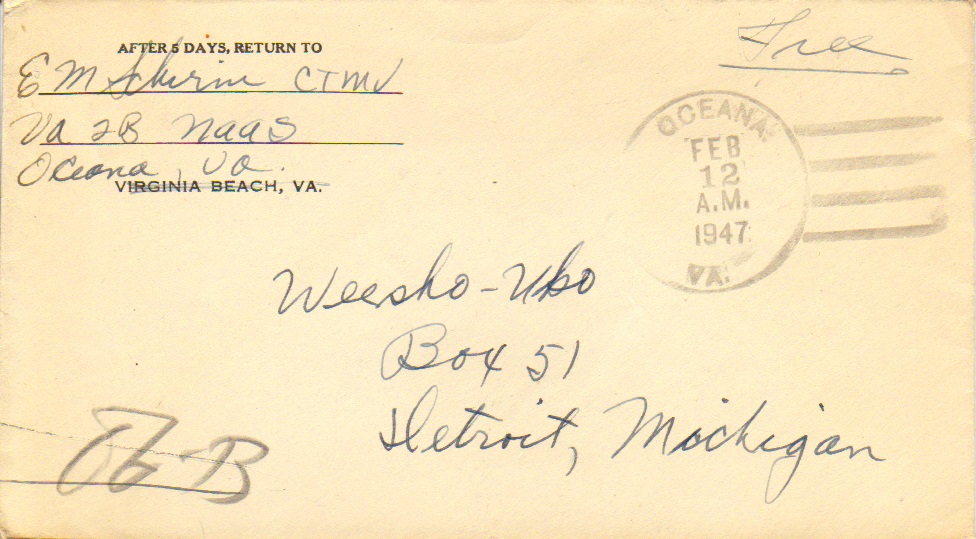 AFTER 5 DAYS, RETURN TO
E M CTMV
Va 2B NAAS
Oceana, Va.
VIRGINIA BEACH, VA.
Free
OCEANA.
FEB
12
A.M.
1947
VA.
Weesho-Uko
Box 51
Detroit, Michigan